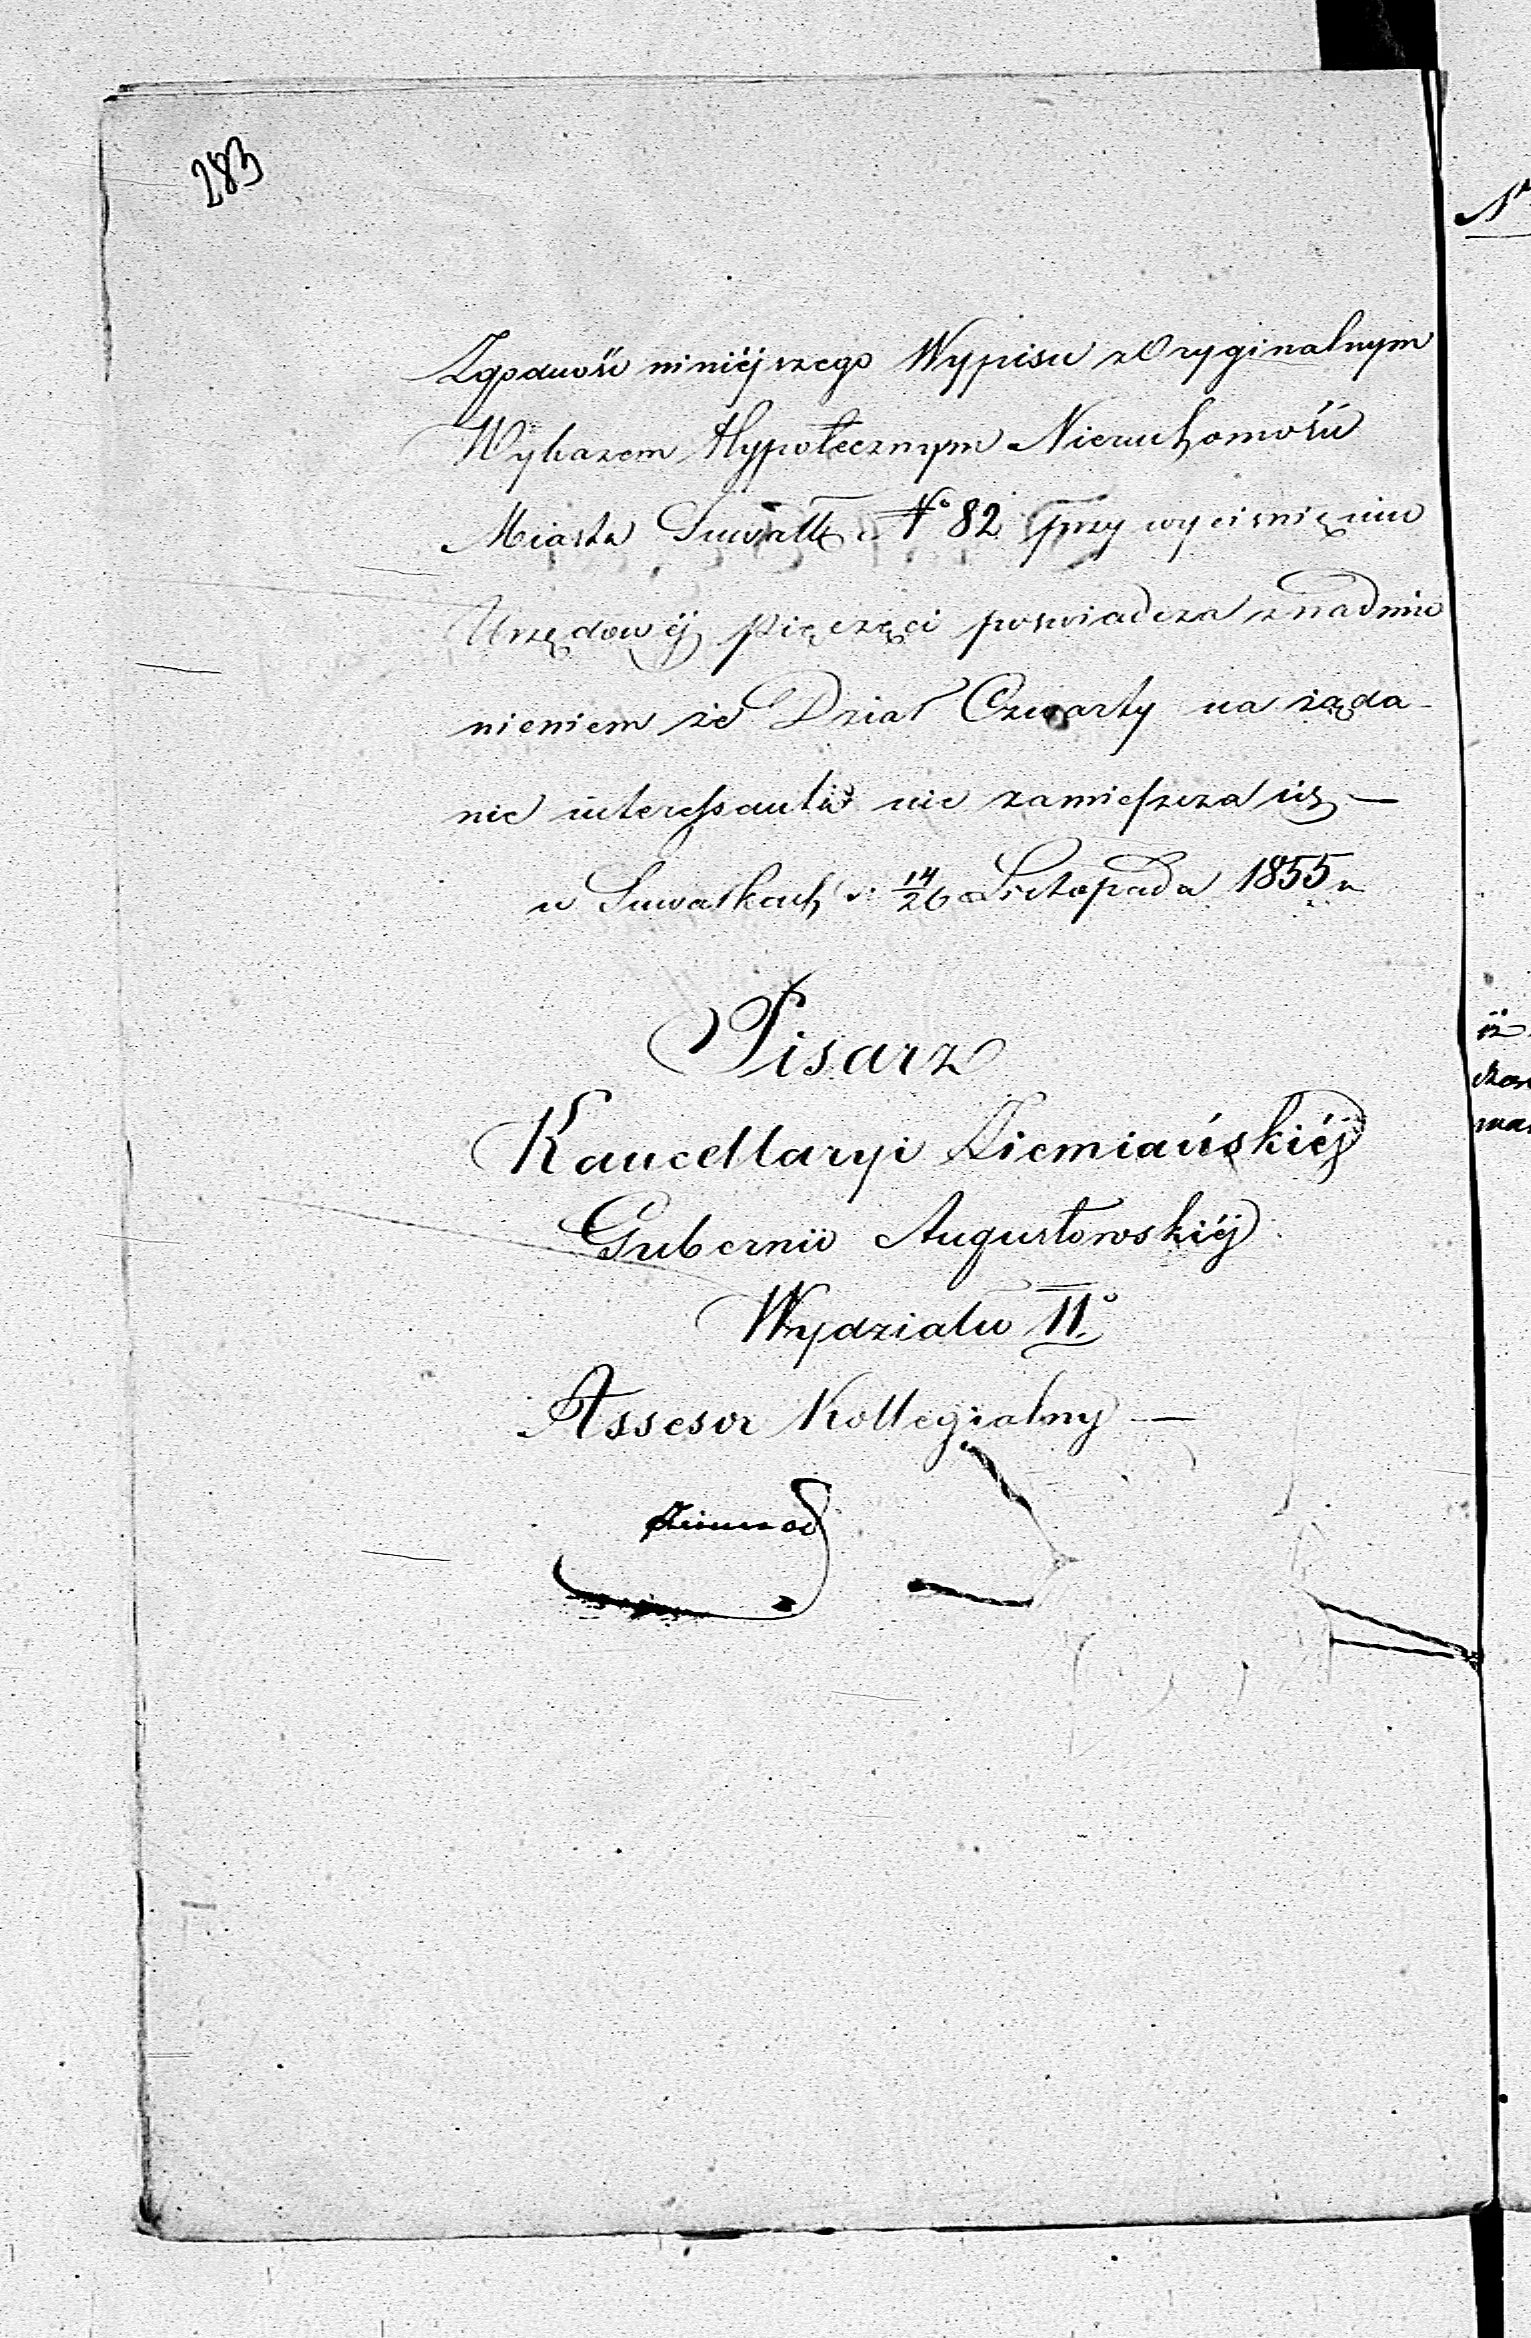 283
Zgodność niniéjszego Wypisu z Oryginalnym
Wykazem Hypotecznym Nieruchomości
Miasta Suwałk No 82 przy wyciśnięciu
Urzędowéj pięczęci poswiadcza z nadmie
nieniem że Dział Czwarty na żąda-
nie interessanta nie zamieszcza się —
w Suwałkach d: 14/26 Listopada 1855 r.
Pisarz
Kancellaryi Ziemiańskiéj
Gubernii Augustowskiéj
Wydziału II°
Assesor Kollegialny —